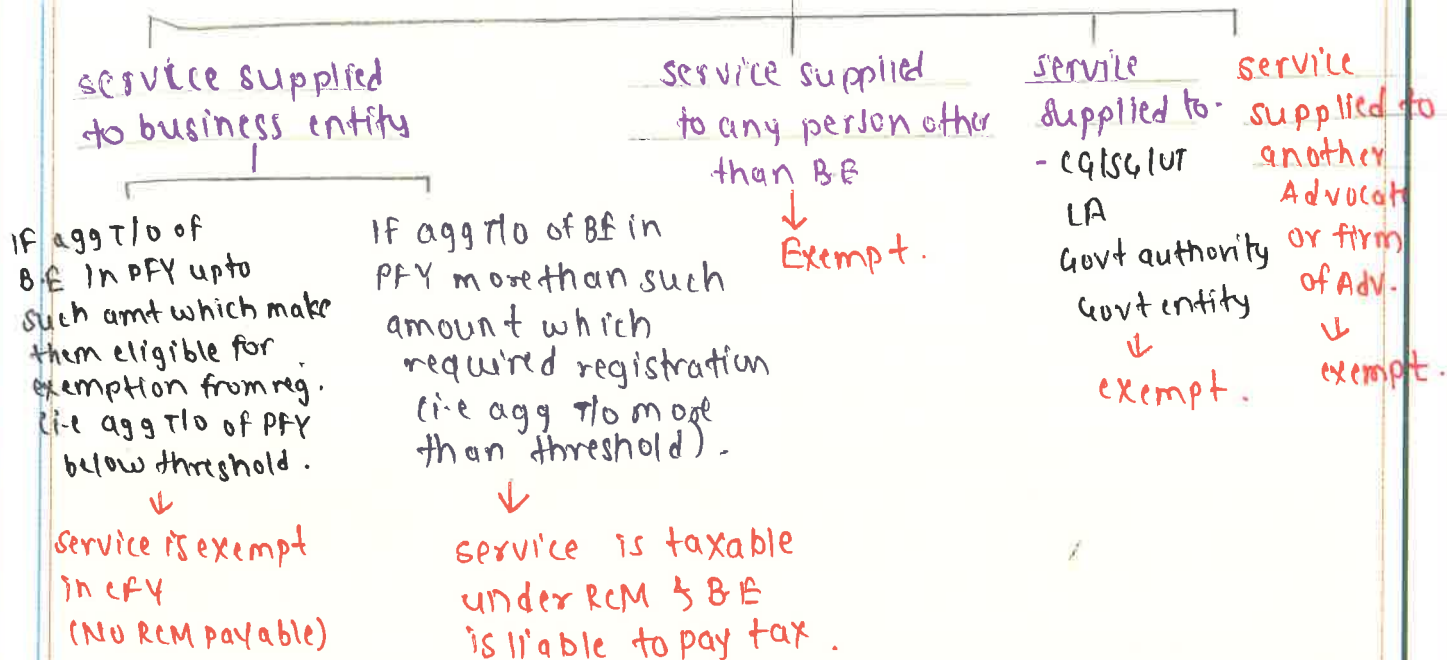 service supplied
to business entity
If agg T/o of
B.E in PFY upto
such amt which make
them eligible for
exemption from reg.
(i.e agg T/o of PFY
below threshold.
service is exempt
in CFY
(No RCM payable)
If agg T/o of BE in
PFY more than such
amount which
required registration
(i.e agg T/o more
than threshold).
service is taxable
under RCM & BE
is liable to pay tax.
service supplied
to any person other
than BE
Exempt.
service
supplied to-
- CG/SG/UT
LA
Govt authority
Govt entity
exempt.
service
supplied to
another
Advocate
or firm
of Adv.
exempt.